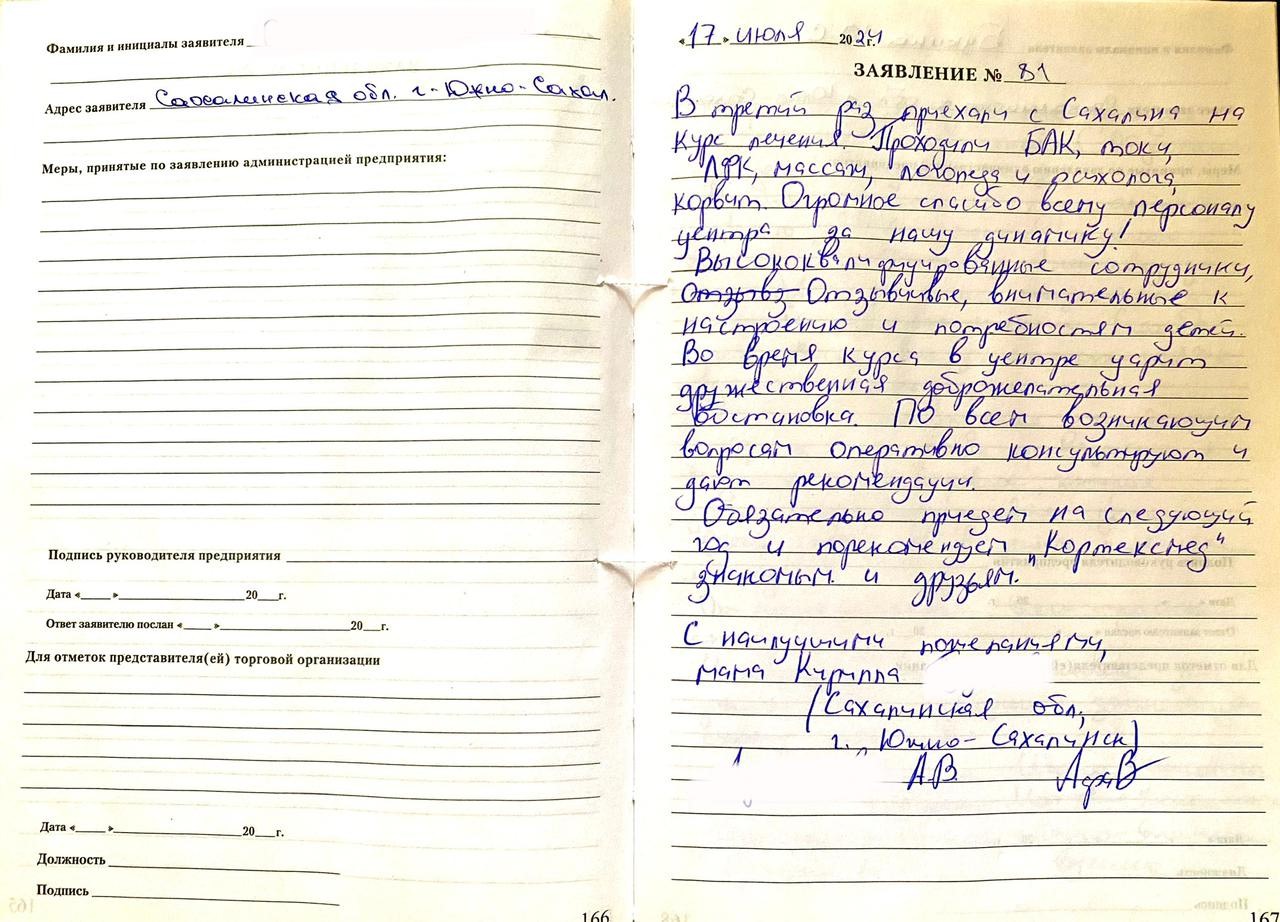 Фамилия и инициалы заявителя
Адрес заявителя Сахалинская обл. г. Южно-Сахал.
Меры, принятые по заявлению администрацией предприятия:
Подпись руководителя предприятия
Дата «___» ___ 20__г.
Ответ заявителю послан «___» ___ 20__г.
Для отметок представителя(ей) торговой организации
Дата «___» ___ 20__г.
Должность
Подпись
166
«17» июля 2024
ЗАЯВЛЕНИЕ № 81
В третий раз приехали с Сахалина на
курс лечения. Проходили БАК, токи,
ЛФК, массаж, логопеда и психолога,
корвит. Огромное спасибо всему персоналу
центра за нашу динамику!
Высококвалифицированные сотрудники,
Отзывз Отзывчивые, внимательные к
настроению и потребностям детей.
Во время курса в центре царит
дружественная доброжелательная
обстановка. По всем возникающим
вопросам оперативно консультируют и
дают рекомендации.
Обязательно приедем на следующий
год и порекомендуем „Кортексмед“
знакомым и друзьям.
С наилучшими пожеланиями,
мама Кирилла
(Сахалинская обл,
г. Южно-Сахалинск)
А.В.
167